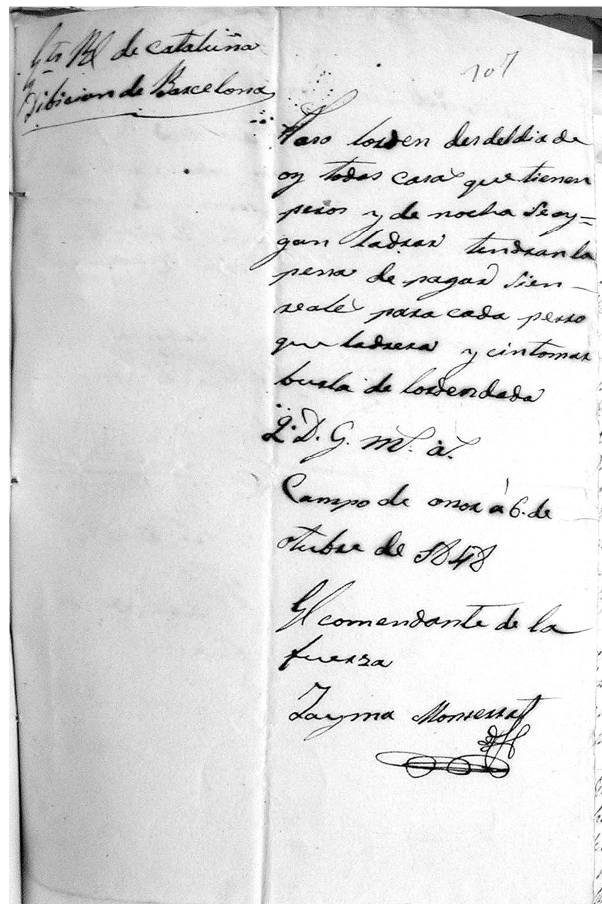 Gto Rl de cataluña
Dibicion de Barcelona
107
Paso lorden desdeldia de
oy todas casa que tienen
peros y de nocha se oy=
gan ladrar tendran la
pena de pagar sien
reale para cada perro
que ladrera y cintomar
burla de lordendada
Q. D. G. m. a.
Campo de onor á 6. de
otubre de 1848
El comendante de la
fuersa
Jayma Monserrat